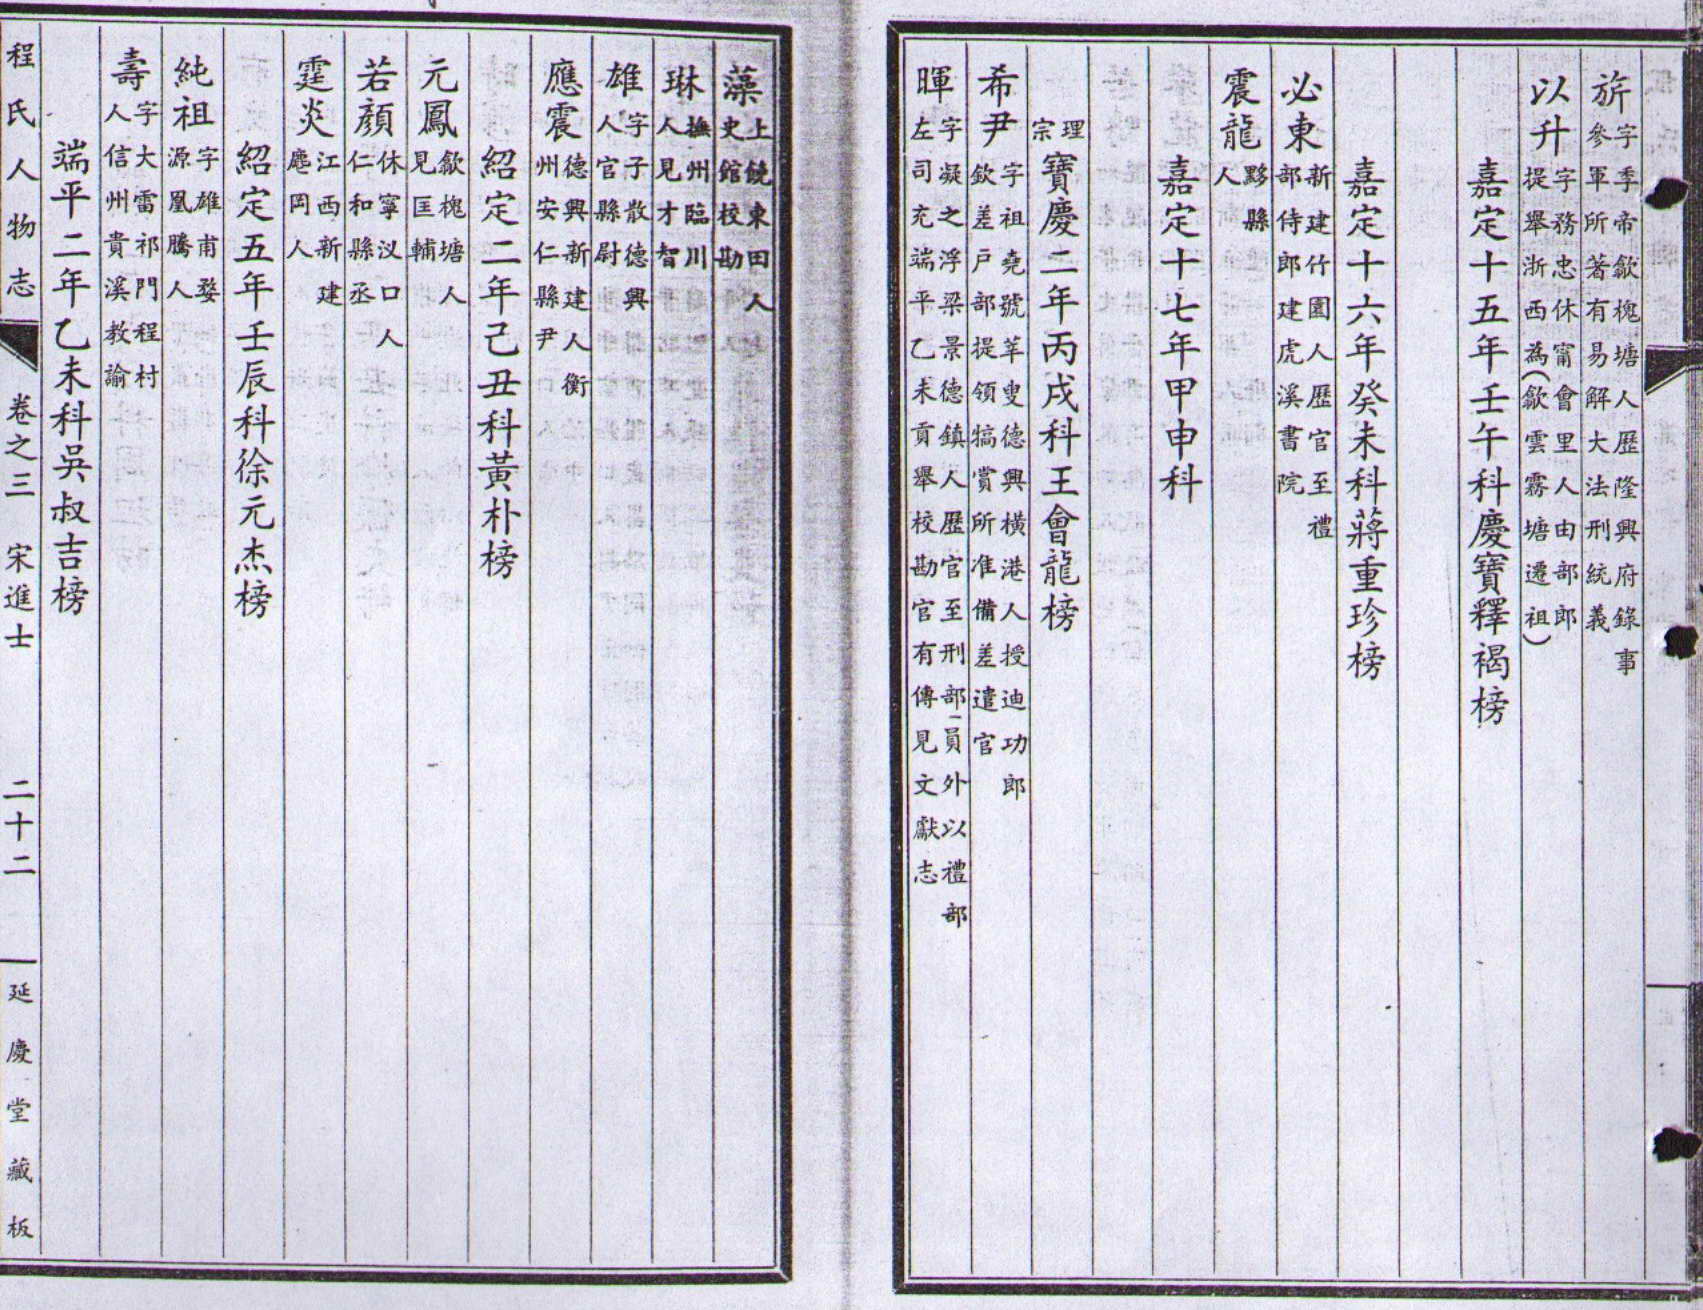 旂 字季帝歙槐塘人歷隆興府錄事
參軍所著有易解大法刑統義
以升 字務忠休甯會里人由部郎
提舉浙西為(歙雲霧塘遷祖)
嘉定十五年壬午科慶寶釋褐榜
嘉定十六年癸未科蔣重珍榜
必東 新建竹園人歷官至禮
部侍郎建虎溪書院
震龍 黟縣
人
嘉定十七年甲申科
理宗 寶慶二年丙戌科王會龍榜
希尹 字祖堯號莘叟德興橫港人授迪功郎
欽差戶部提領犒賞所准備差遣官
暉 字凝之浮梁景德鎮人歷官至刑部員外以禮部
左司充端平乙未貢舉校勘官有傳見文獻志
藻 上饒東田人
史館校勘
琳 撫州臨川
人見才智
雄 字子散德興
人官縣尉
應震 德興新建人衡
州安仁縣尹
紹定二年己丑科黃朴榜
元鳳 歙槐塘人
見匡輔
若顏 休寧汊口人
仁和縣丞
霆炎 江西新建
岡人
紹定五年壬辰科徐元杰榜
純祖 字雄甫婺
源凰騰人
壽 字大雷祁門程村
人信州貴溪教諭
端平二年乙未科吳叔吉榜
程氏人物志
卷之三 宋進士
二十二
延慶堂藏板